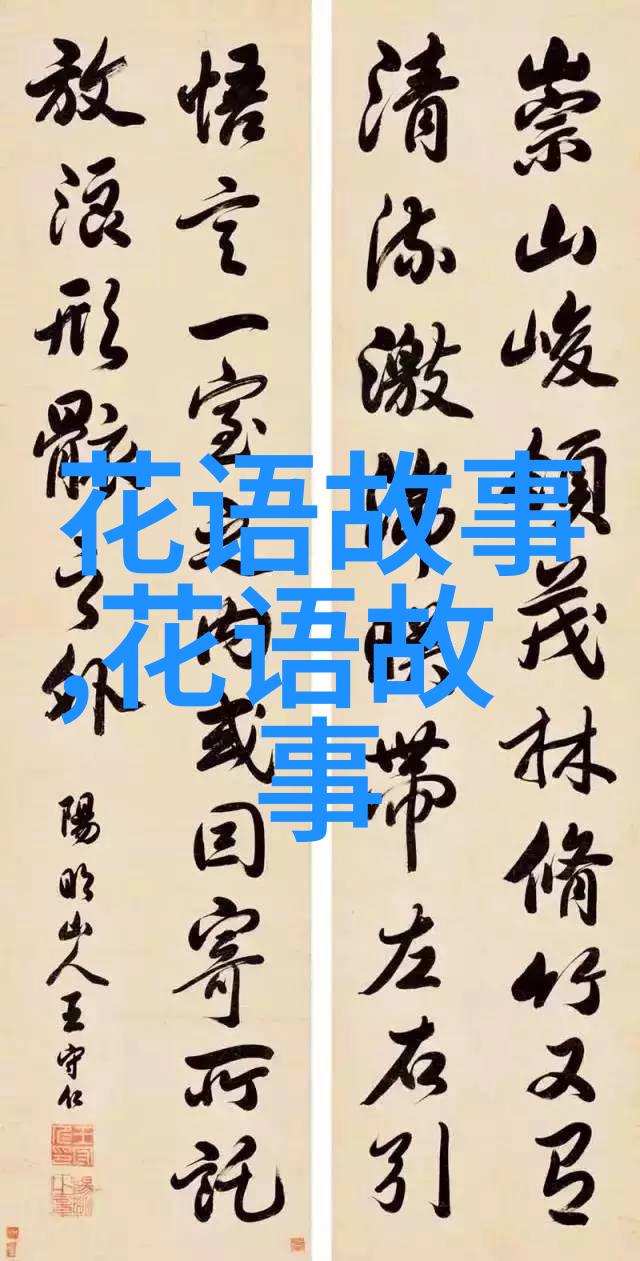 崇山峻領茂林脩竹又有
清流激湍暎帶左右引
悟言一室之內或因寄所託
放浪形骸之外
陽明山人王守仁
花语故事
,花语故
事